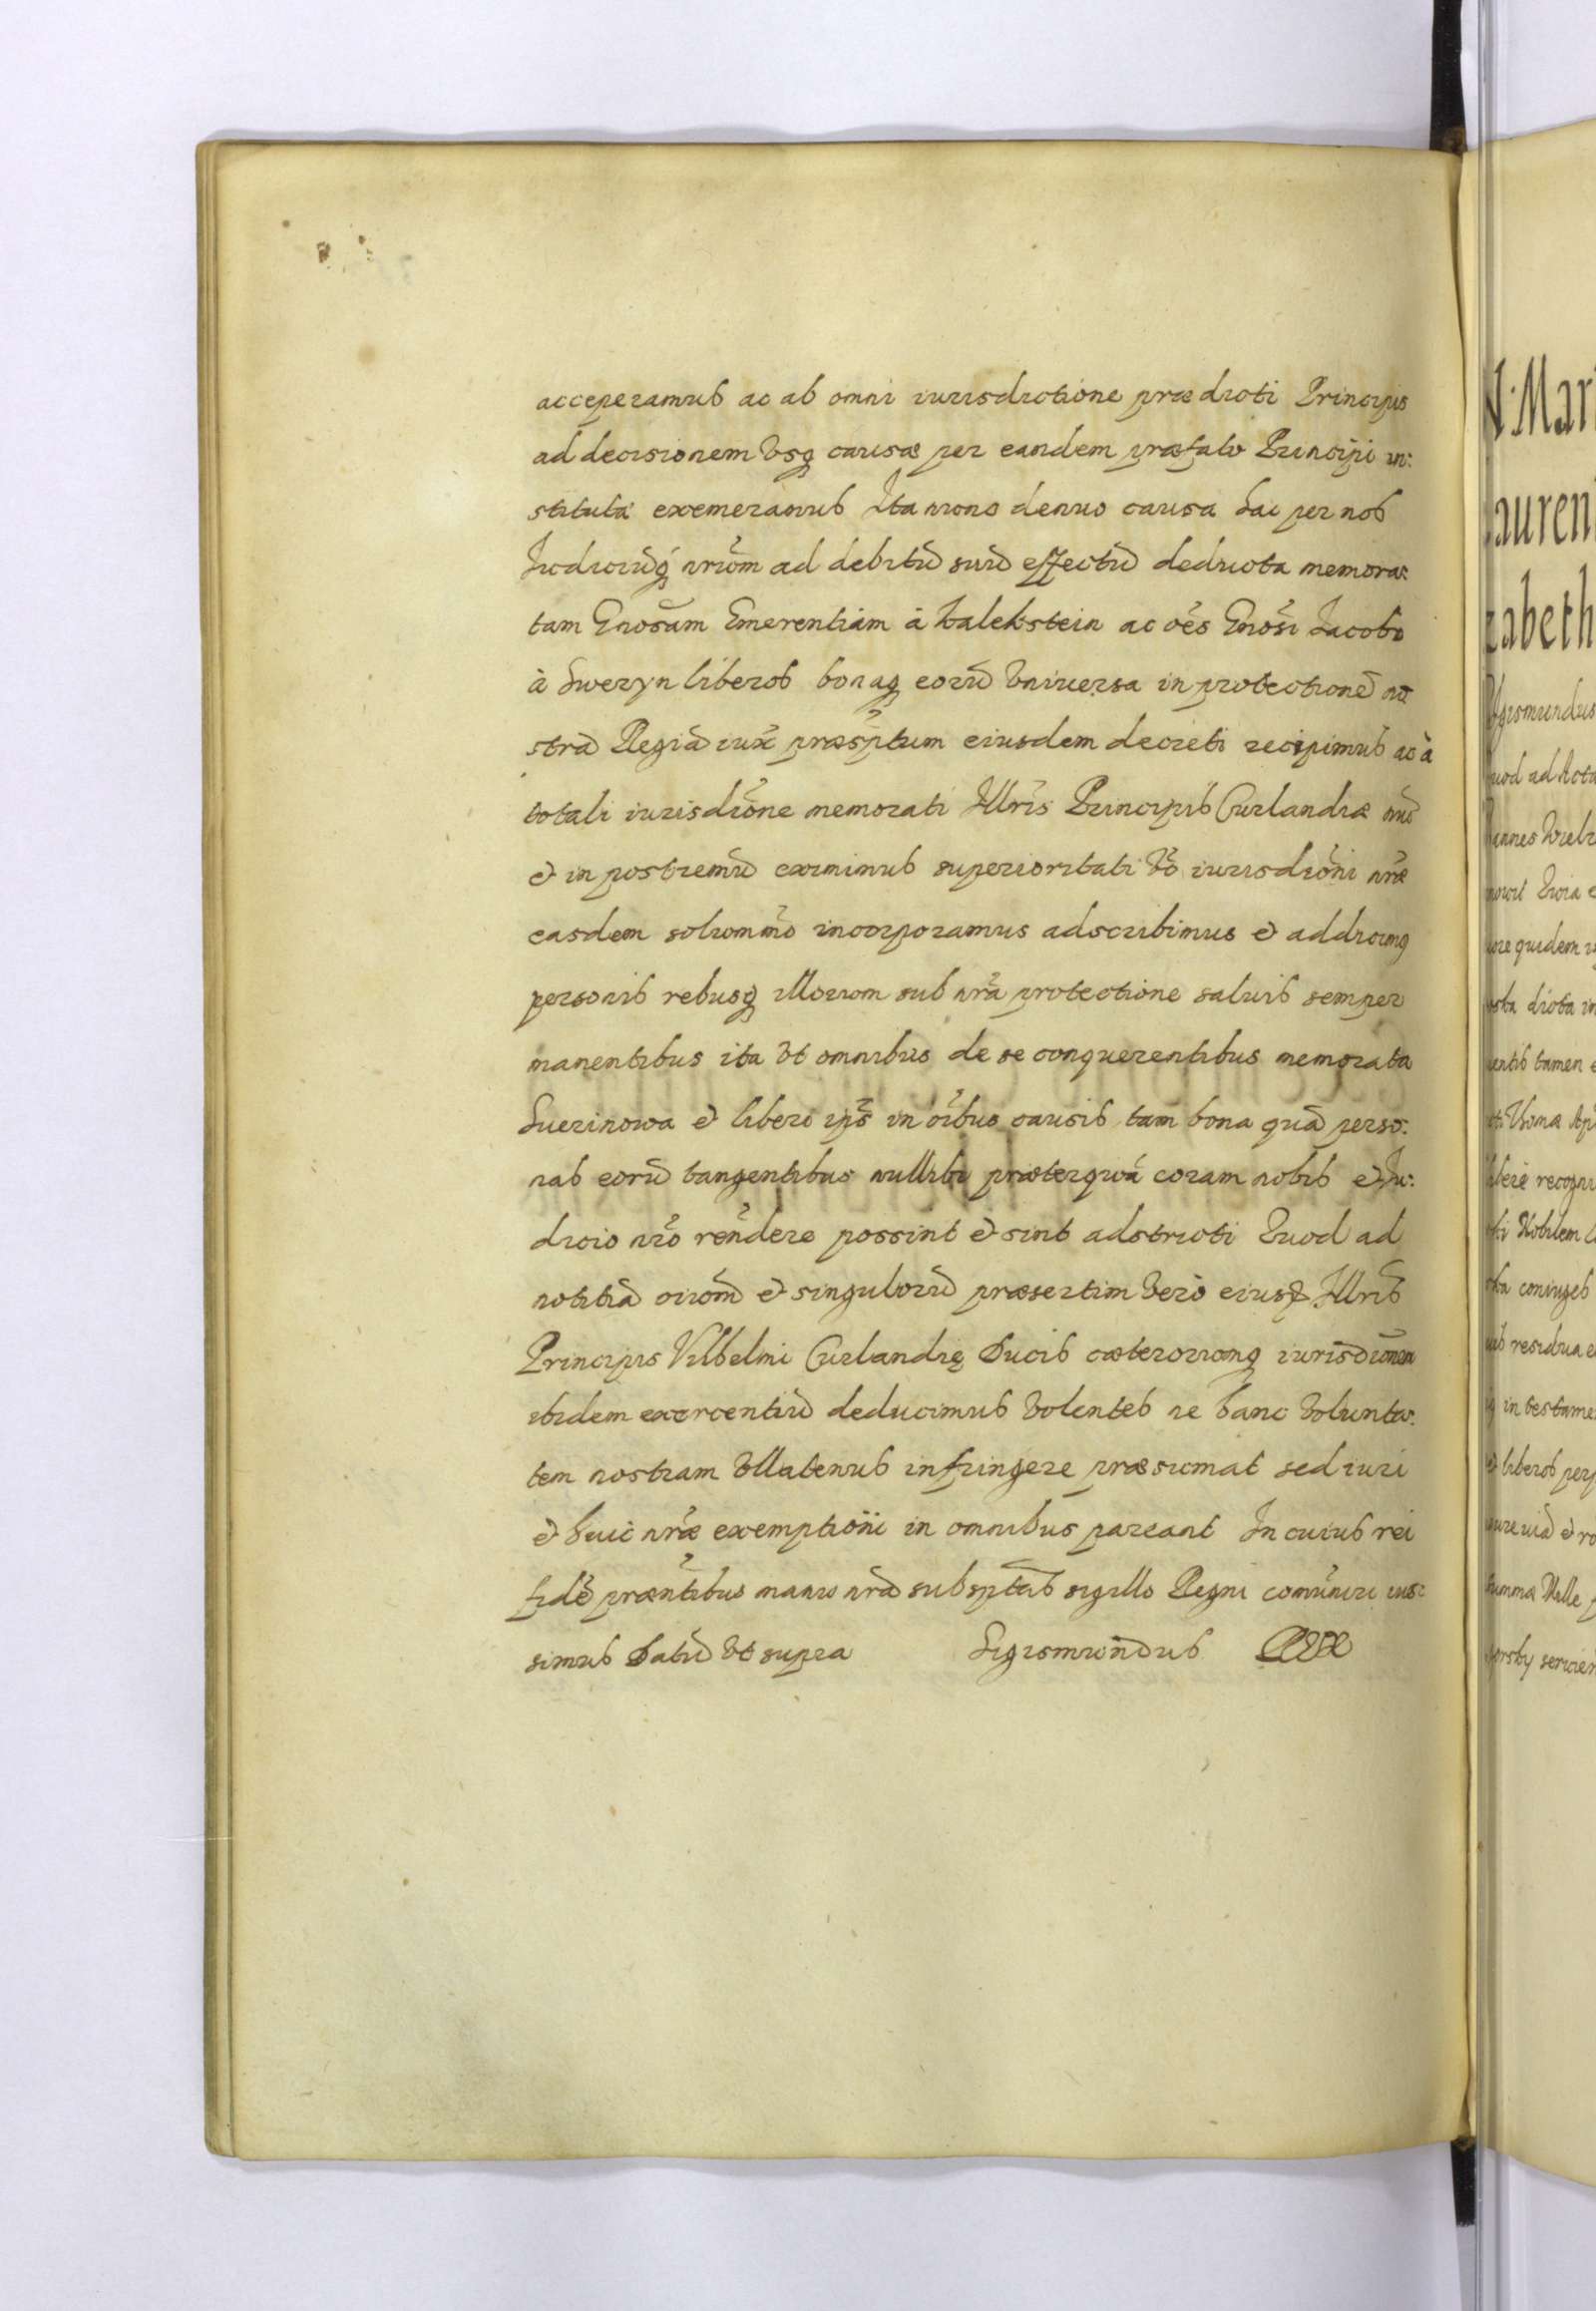 acceperamus ac ab omni iurisdictione prædicti Principis
ad decisionem vsq causæ per eandem præfato Principi in:
stituta exemeramus Ita nunc denuo causa hac per nos
Iudiciuq nrum ad debitū suū effectū deducta memora:
tam Gnosam Emerentiam à Kalekstein ac oēs Gnosi Iacobi
à Sweryn liberos bonaq eorū vniuersa in protectionē no
strā Regiā iux præsptum eiusdem decreti recipimus ac à
totali iurisdione memorati Illris Principis Curlandiæ nūc
et in postremū eximimus superioritati vō iurisdioni nræ
easdem solummo incorporamus adscribimus et addicimq
personis rebusq illorum sub nra protectione saluis semper
manentibus ita vt omnibus de se conquerentibus memorata
Suerinowa et liberi ips in oibus causis tam bona quā perso:
nas eorū tangentibus nullibi præterquā coram nobis et Iu:
dicio nro rendere possint et sint adstricti Quod ad
notitiā oium et singulorū præsertim verò eiusd Illris
Principis Vilhelmi Curlandię Ducis cæterorumq iurisdionem
ibidem exercentiū deducimus volentes ne hanc volunta:
tem nostram vllatenus infringere præsumat sed iuri
et huic nræ exemptioni in omnibus pareant In cuius rei
fidē præntibus manu nrā subsptis sigillo Regni comuniri ius:
simus Datū vt supra Sigismundus Rex
N. Mar
auren
zabeth
igismundus
uod ad Acta
annes
ore quidem
sta dicta in
tamen
libere recogni
Nobilem
coniuges
residua
in testame
liberos per
summa Mille